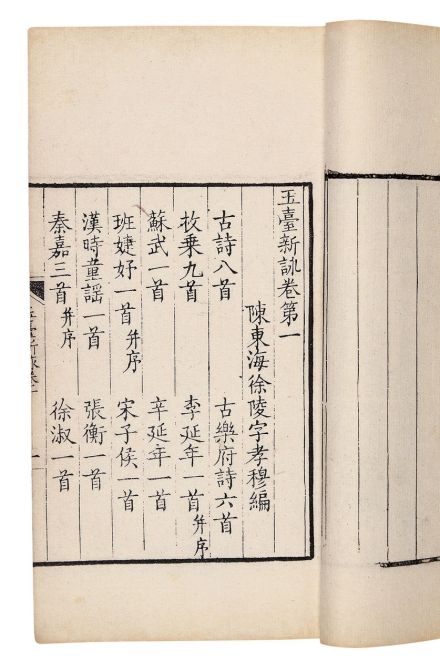 玉臺新詠卷第一
陳東海徐陵字孝穆編
古詩八首　古樂府詩六首
枚乗九首　李延年一首并序
蘇武一首　辛延年一首
班婕妤一首并序　宋子侯一首
漢時童謡一首　張衡一首
秦嘉三首并序　徐淑一首